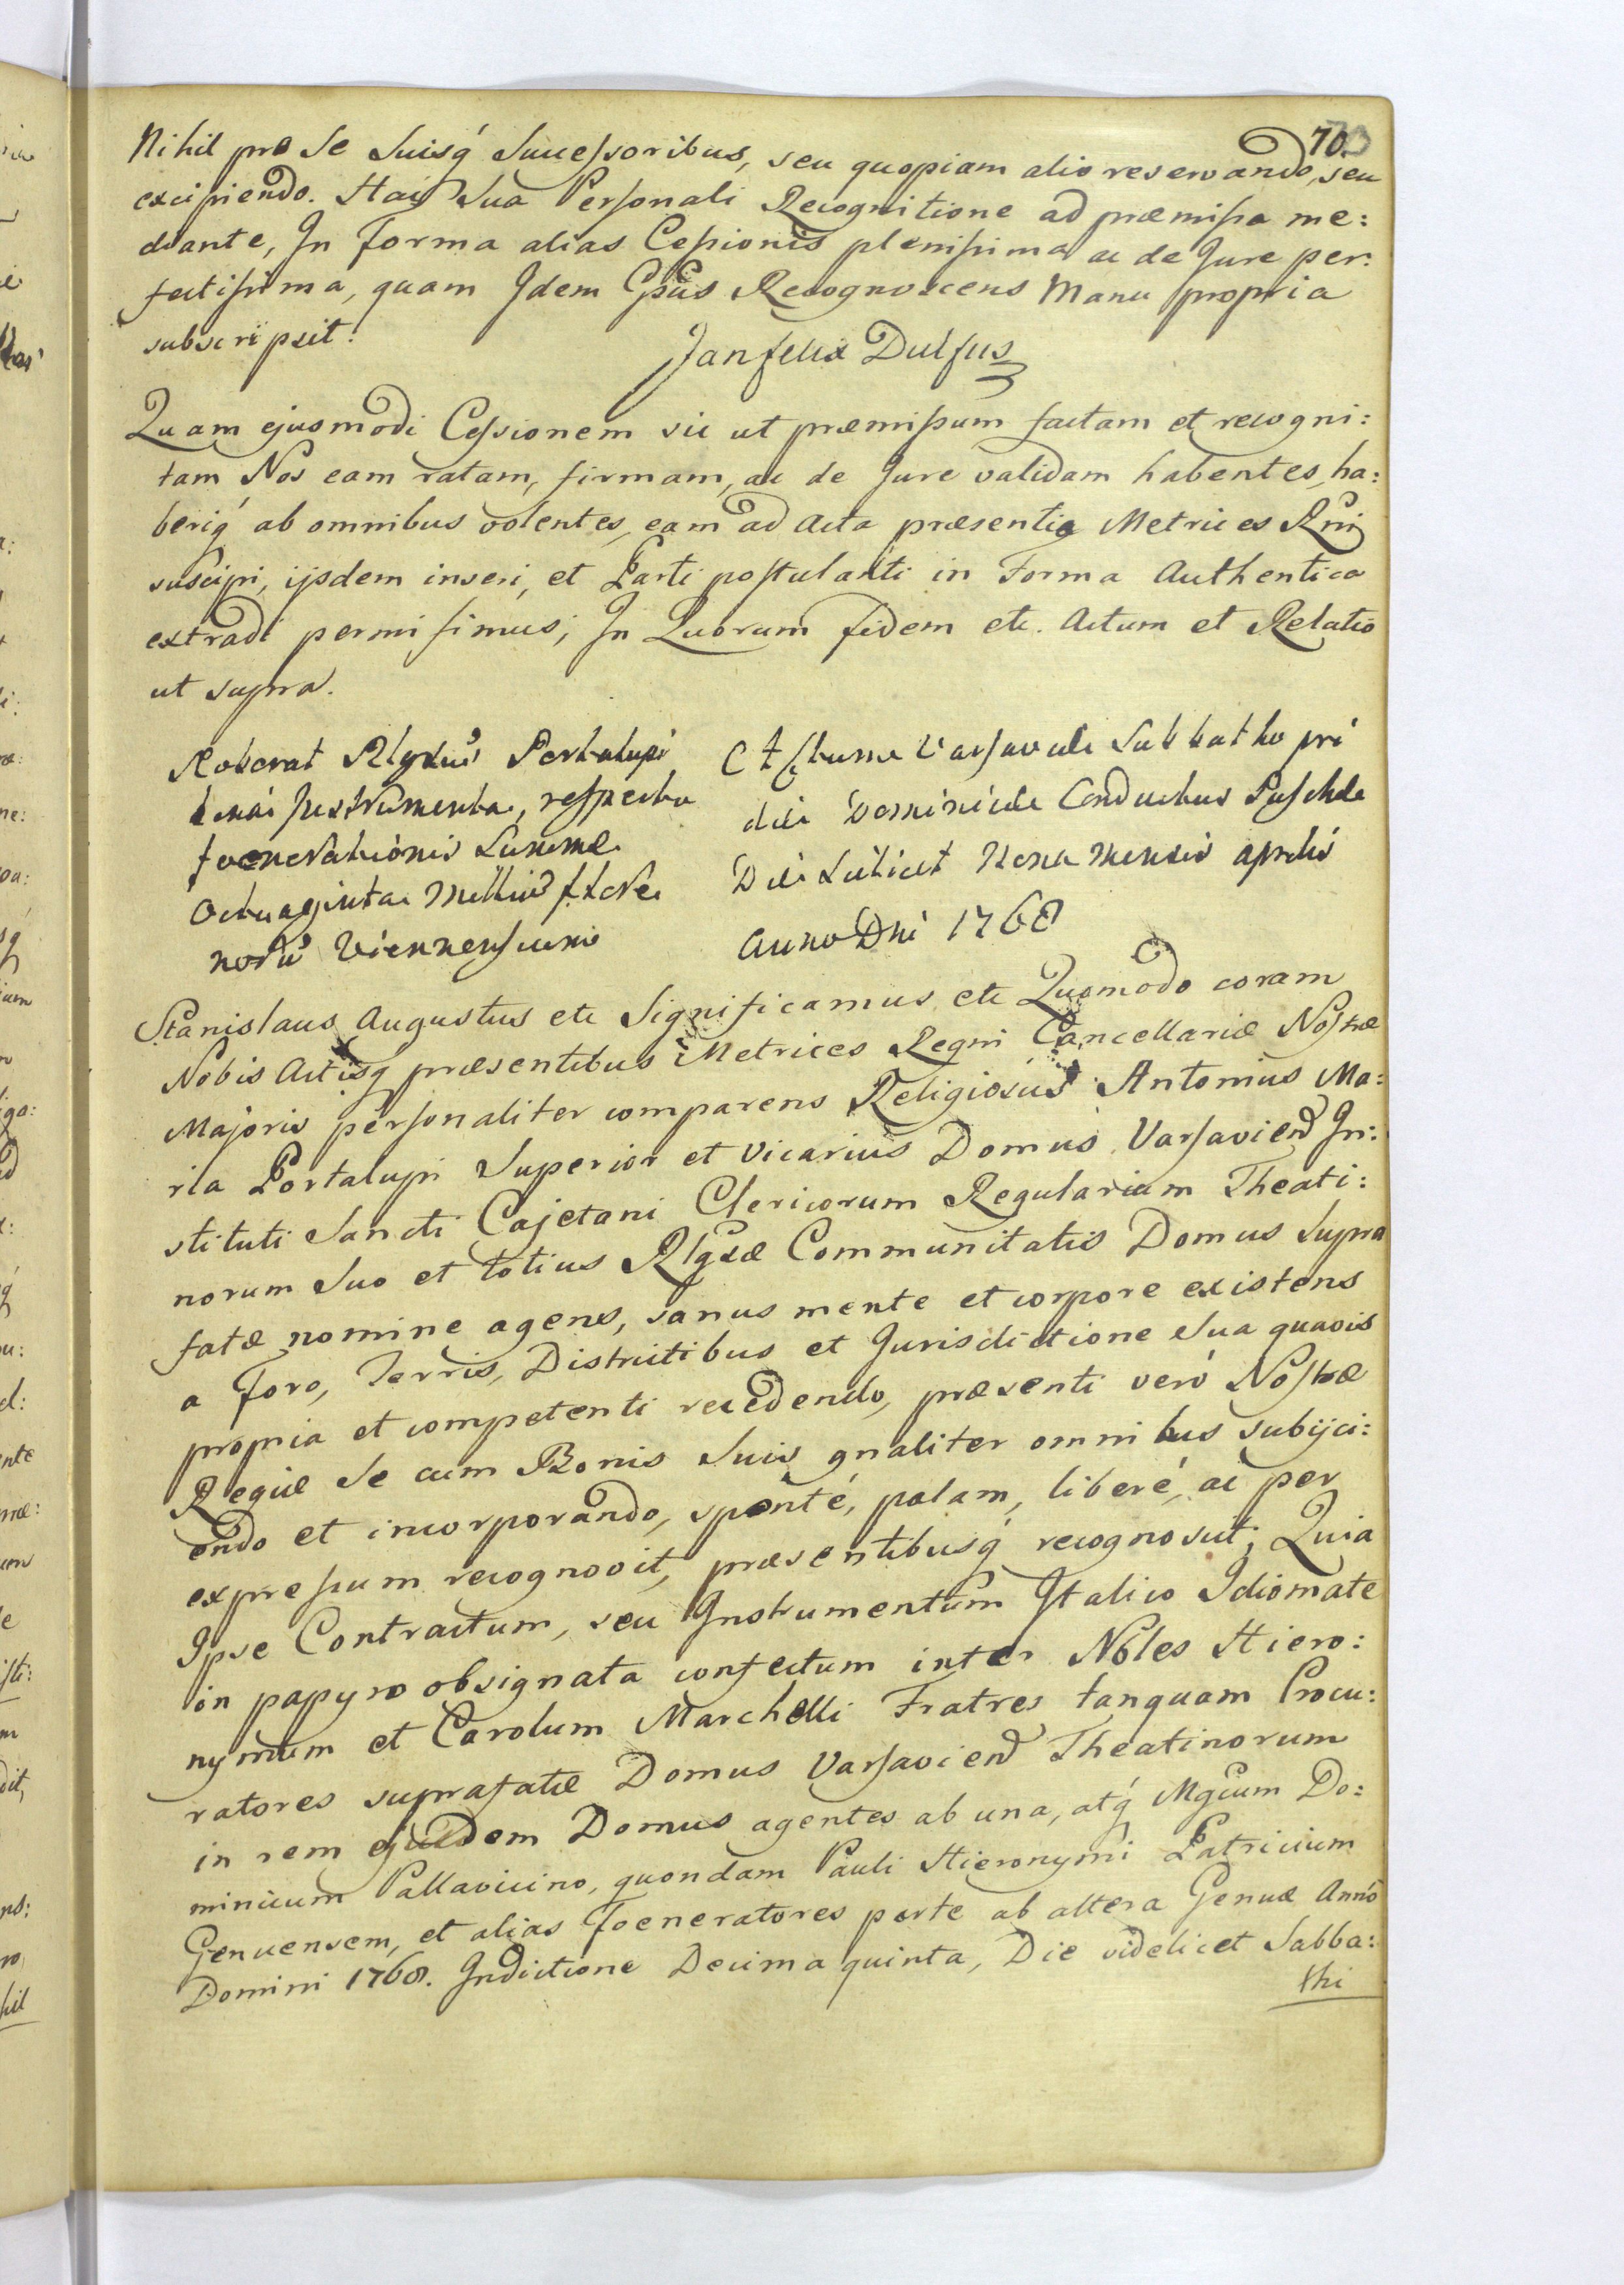 70.
Nihil pro Se Suisq́ Successoribus, seu quopiam alio reservando, seu
excipiendo. Hacq Sua Personali Recognitione ad præmissa me:
diante, In Forma alias Cessionis plenissima ac de Jure per:
fectissima, quam Idem Gsus Recognoscens Manu propria
subscripsit.
Jan felix Dulfus
Quam ejusmodi Cessionem sic ut præmissum factam et recogni:
tam Nos eam ratam, firmam, ac de Jure validam habentes, ha:
beriq́ ab omnibus volentes, eam ad Acta præsentia Metrices Rni
suscipi, ijsdem inseri, et Parti postulanti in Forma Authentica
extradi permisimus; In Quorum fidem etc. Actum et Relatio
ut supra.
Roborat Rlgsus Portalupi
Instrumenta, respectu
foenerationis Summæ
Octuaginta Millium flore
noru Viennensium
Actum Varsaviæ Sabbatho pri
die Dominicæ Conductus Paschæ
Die Scilicet Nona Mensis Aprilis
Anno Dni 1768
Stanislaus Augustus etc Significamus etc Quomodo coram
Nobis Actisq præsentibus Metrices Regni Cancellariæ Nostræ
Majoris personaliter comparens Religiosus Antonius Ma:
ria Portalupi Superior et Vicarius Domus Varsavien In:
stituti Sancti Cajetani Clericorum Regularium Theati:
norum Suo et totius Rlgsæ Communitatis Domus Supra
fatæ nomine agens, sanus mente et corpore existens
a Foro, Terris, Districtibus et Jurisdictione Sua quavis
propria et competenti recedendo, præsenti vero Nostræ
Regiæ Se cum Bonis Suis gnaliter omnibus subijci:
endo et incorporando, sponté, palam, liberé, ac per
expressum recognovit, præsentibusq́ recognoscit; Quia
Ipse Contractum, seu Instrumentum Italico Idiomate
in papyro obsignata confectum inter Nobles Hiero:
nymum et Carolum Marchelli Fratres tanquam Procu:
ratores suprafatæ Domus Varsavien Theatinorum
in rem ejusdem Domus agentes ab una, atq́ Mgcum Do:
minicum Pallavicino, quondam Pauli Hieronymi Patricium
Genuensem, et alias Foeneratores parte ab altera Genuæ Anno
Domini 1768. Indictione Decima quinta, Die videlicet Sabba:
thi